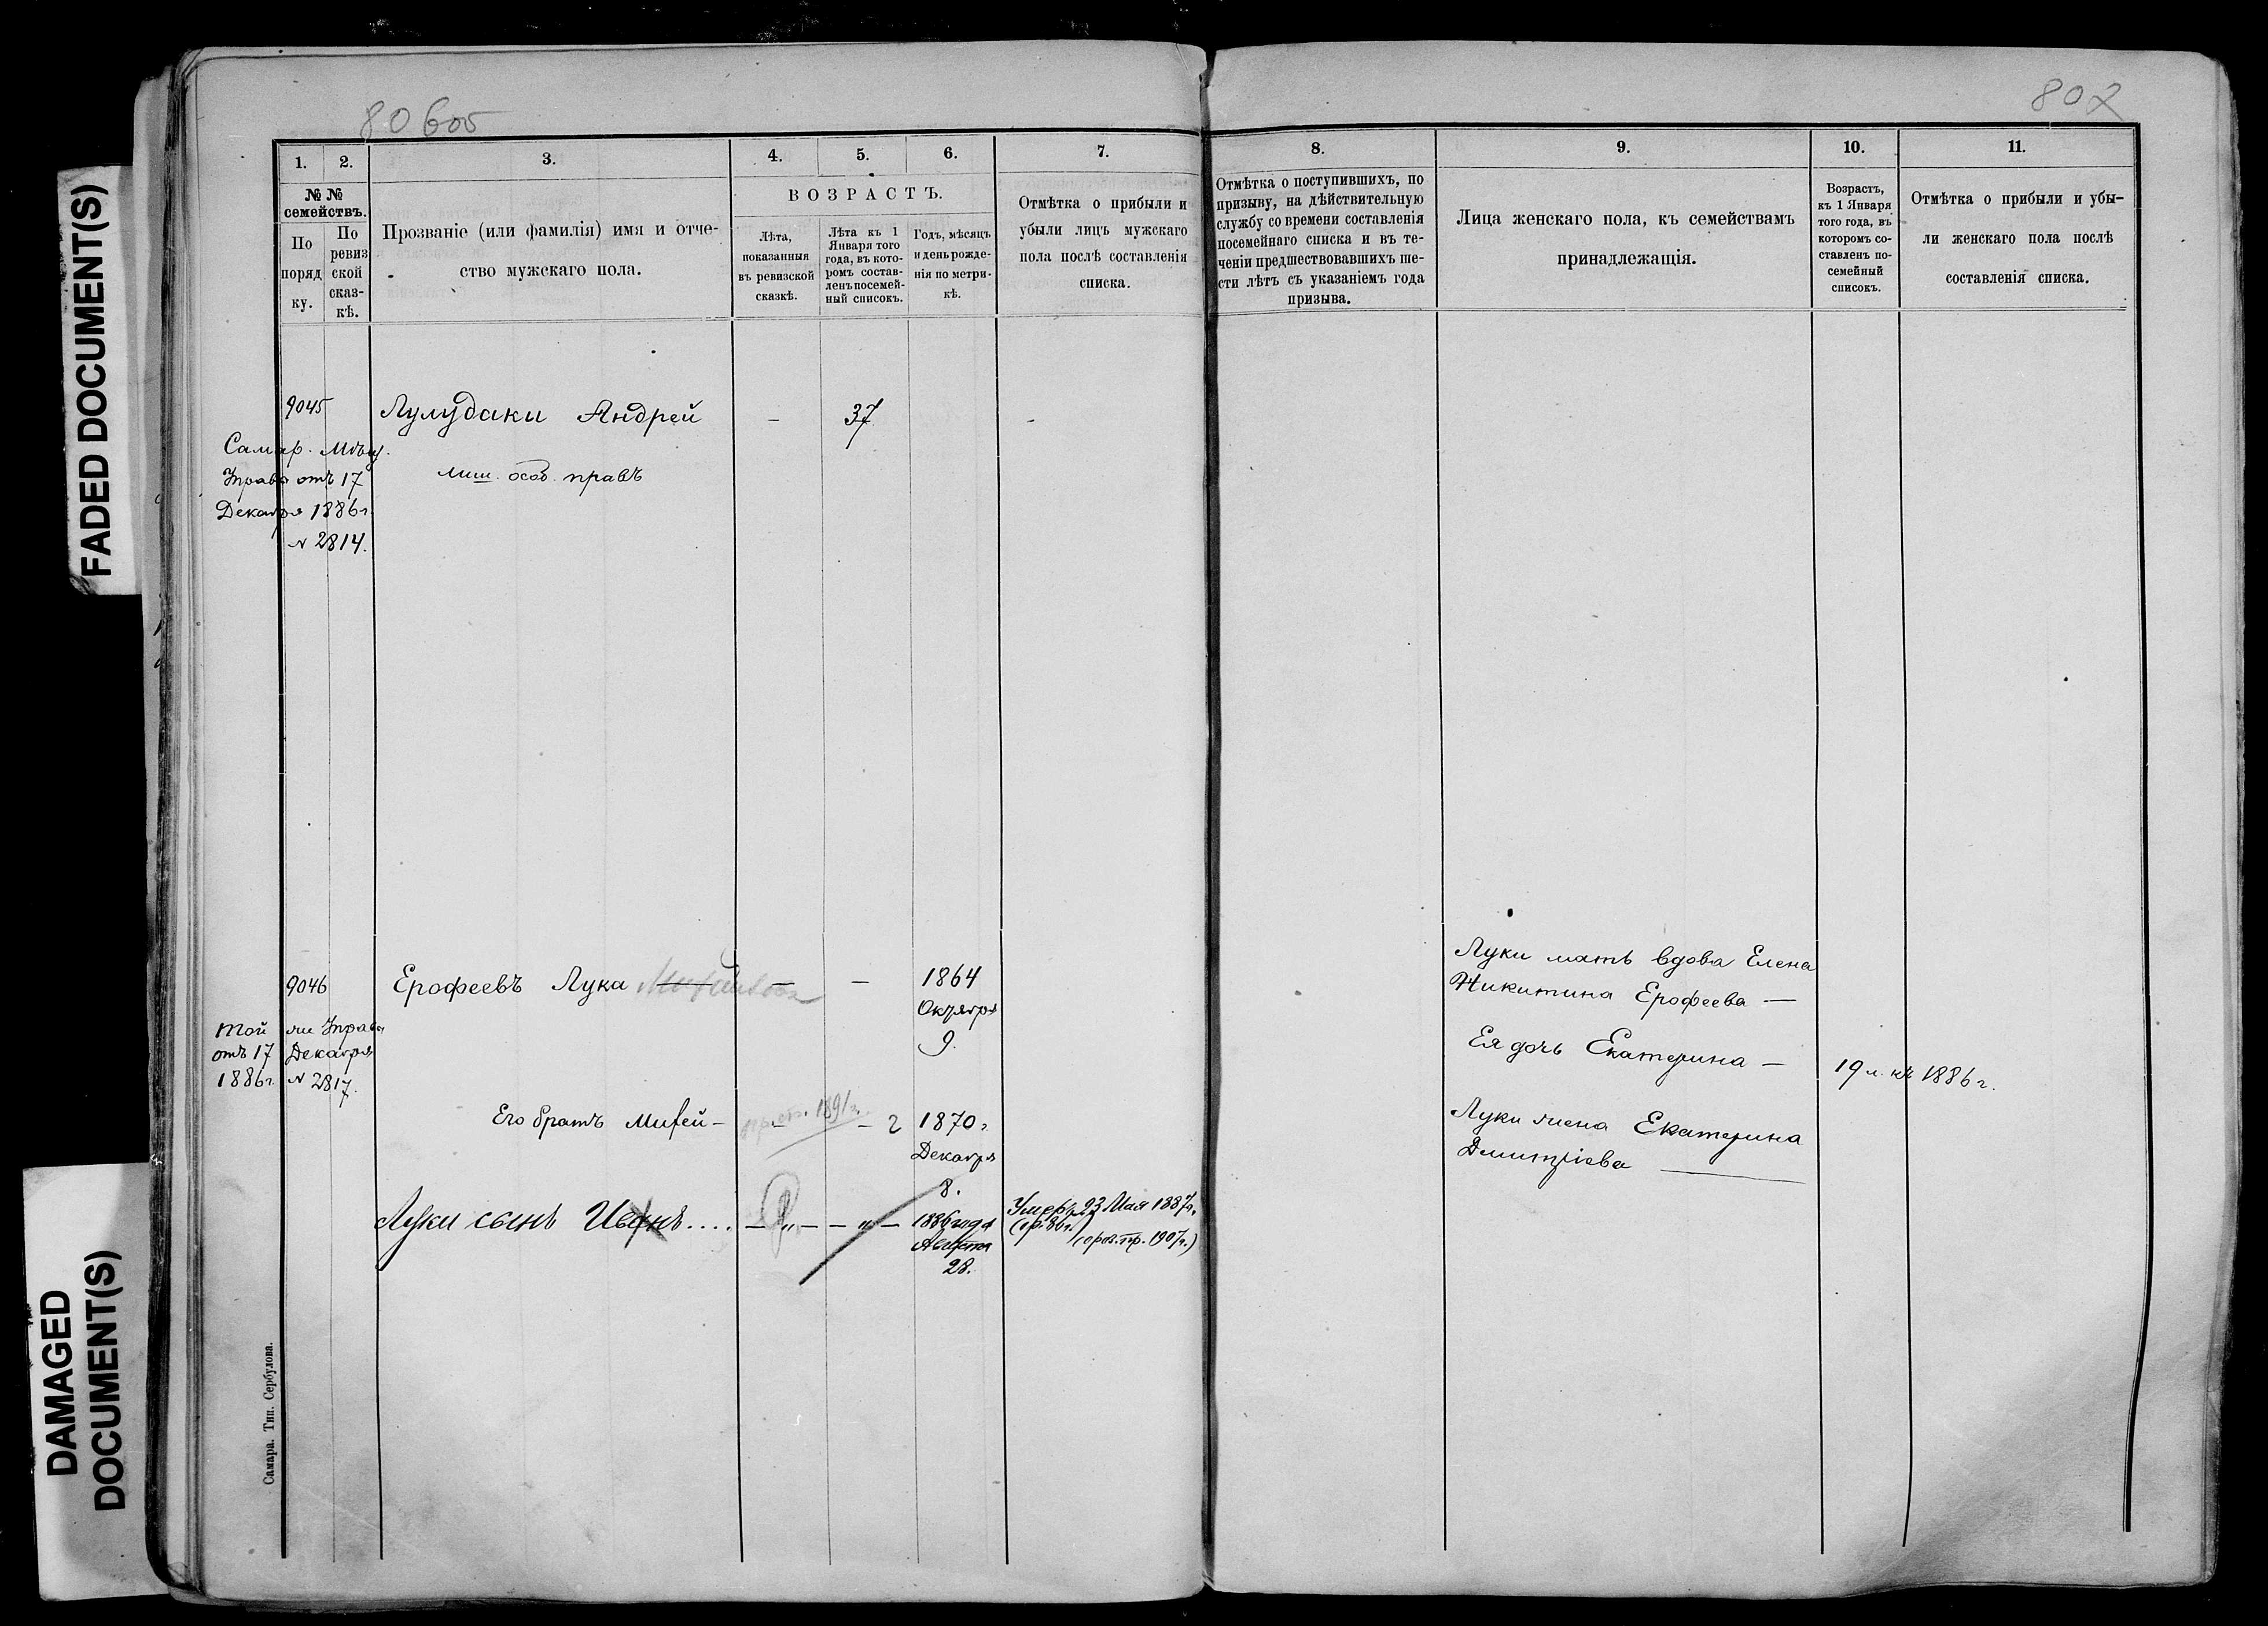 FADED DOCUMENT(S)
DAMAGED
DOCUMENT(S)
80 боб
802
1.
2.
3.
4.
5.
6.
7.
8.
9.
10.
11.
№ №
семействъ.
По
поряд
ку.
По
ревиз
ской
сказ-
кѣ.
Прозваніе (или фамилія) имя и отче-
ство мужскаго пола.
ВОЗРАСТЪ.
Лѣта,
показанныя
въ ревизской
сказкѣ.
Лѣта къ 1
Января того
года, въ кото-
ромъ состав-
ленъ посемей-
ный списокъ.
Годъ, мѣсяцъ
и день рожде-
нія по метри-
кѣ.
Отмѣтка о прибыли и
убыли лицъ мужскаго
пола послѣ составленія
списка.
Отмѣтка о поступившихъ, по
призыву, на дѣйствительную
службу со времени составленія
посемейнаго списка и въ те-
ченіи предшествовавшихъ ше-
сти лѣтъ съ указаніемъ года
призыва.
Лица женскаго пола, къ семействамъ
принадлежащія.
Возрастъ,
къ 1 Января
того года, въ
которомъ со-
ставленъ по-
семейный
списокъ.
Отмѣтка о прибыли и убы-
ли женскаго пола послѣ
составленія списка.
9045
Лулудаки Андрей - 37 -
Самар. Мѣщ.
Управы отъ 17
Декабря 1886 г.
N 2814.
лиш. особ. правъ
9046
Ерофеевъ Лука — — 1864
Октября
9.
Той же Управы
отъ 17 Декабря
1886 г. N 2817.
Его братъ Миѳей - 1891 г. - 2 1870 г.
Декабря
8.
Луки сынъ Иванъ.... — „ — — „ — 1886 года
Августа
28.
Умеръ 23 Мая 1887 г.
1907 г.)
Луки мать вдова Елена
Никитина Ерофеева —
Ея дочь Екатерина — 19 л. къ 1886 г.
Луки жена Екатерина
Дмитріева —
Самара. Тип. Сербулова.